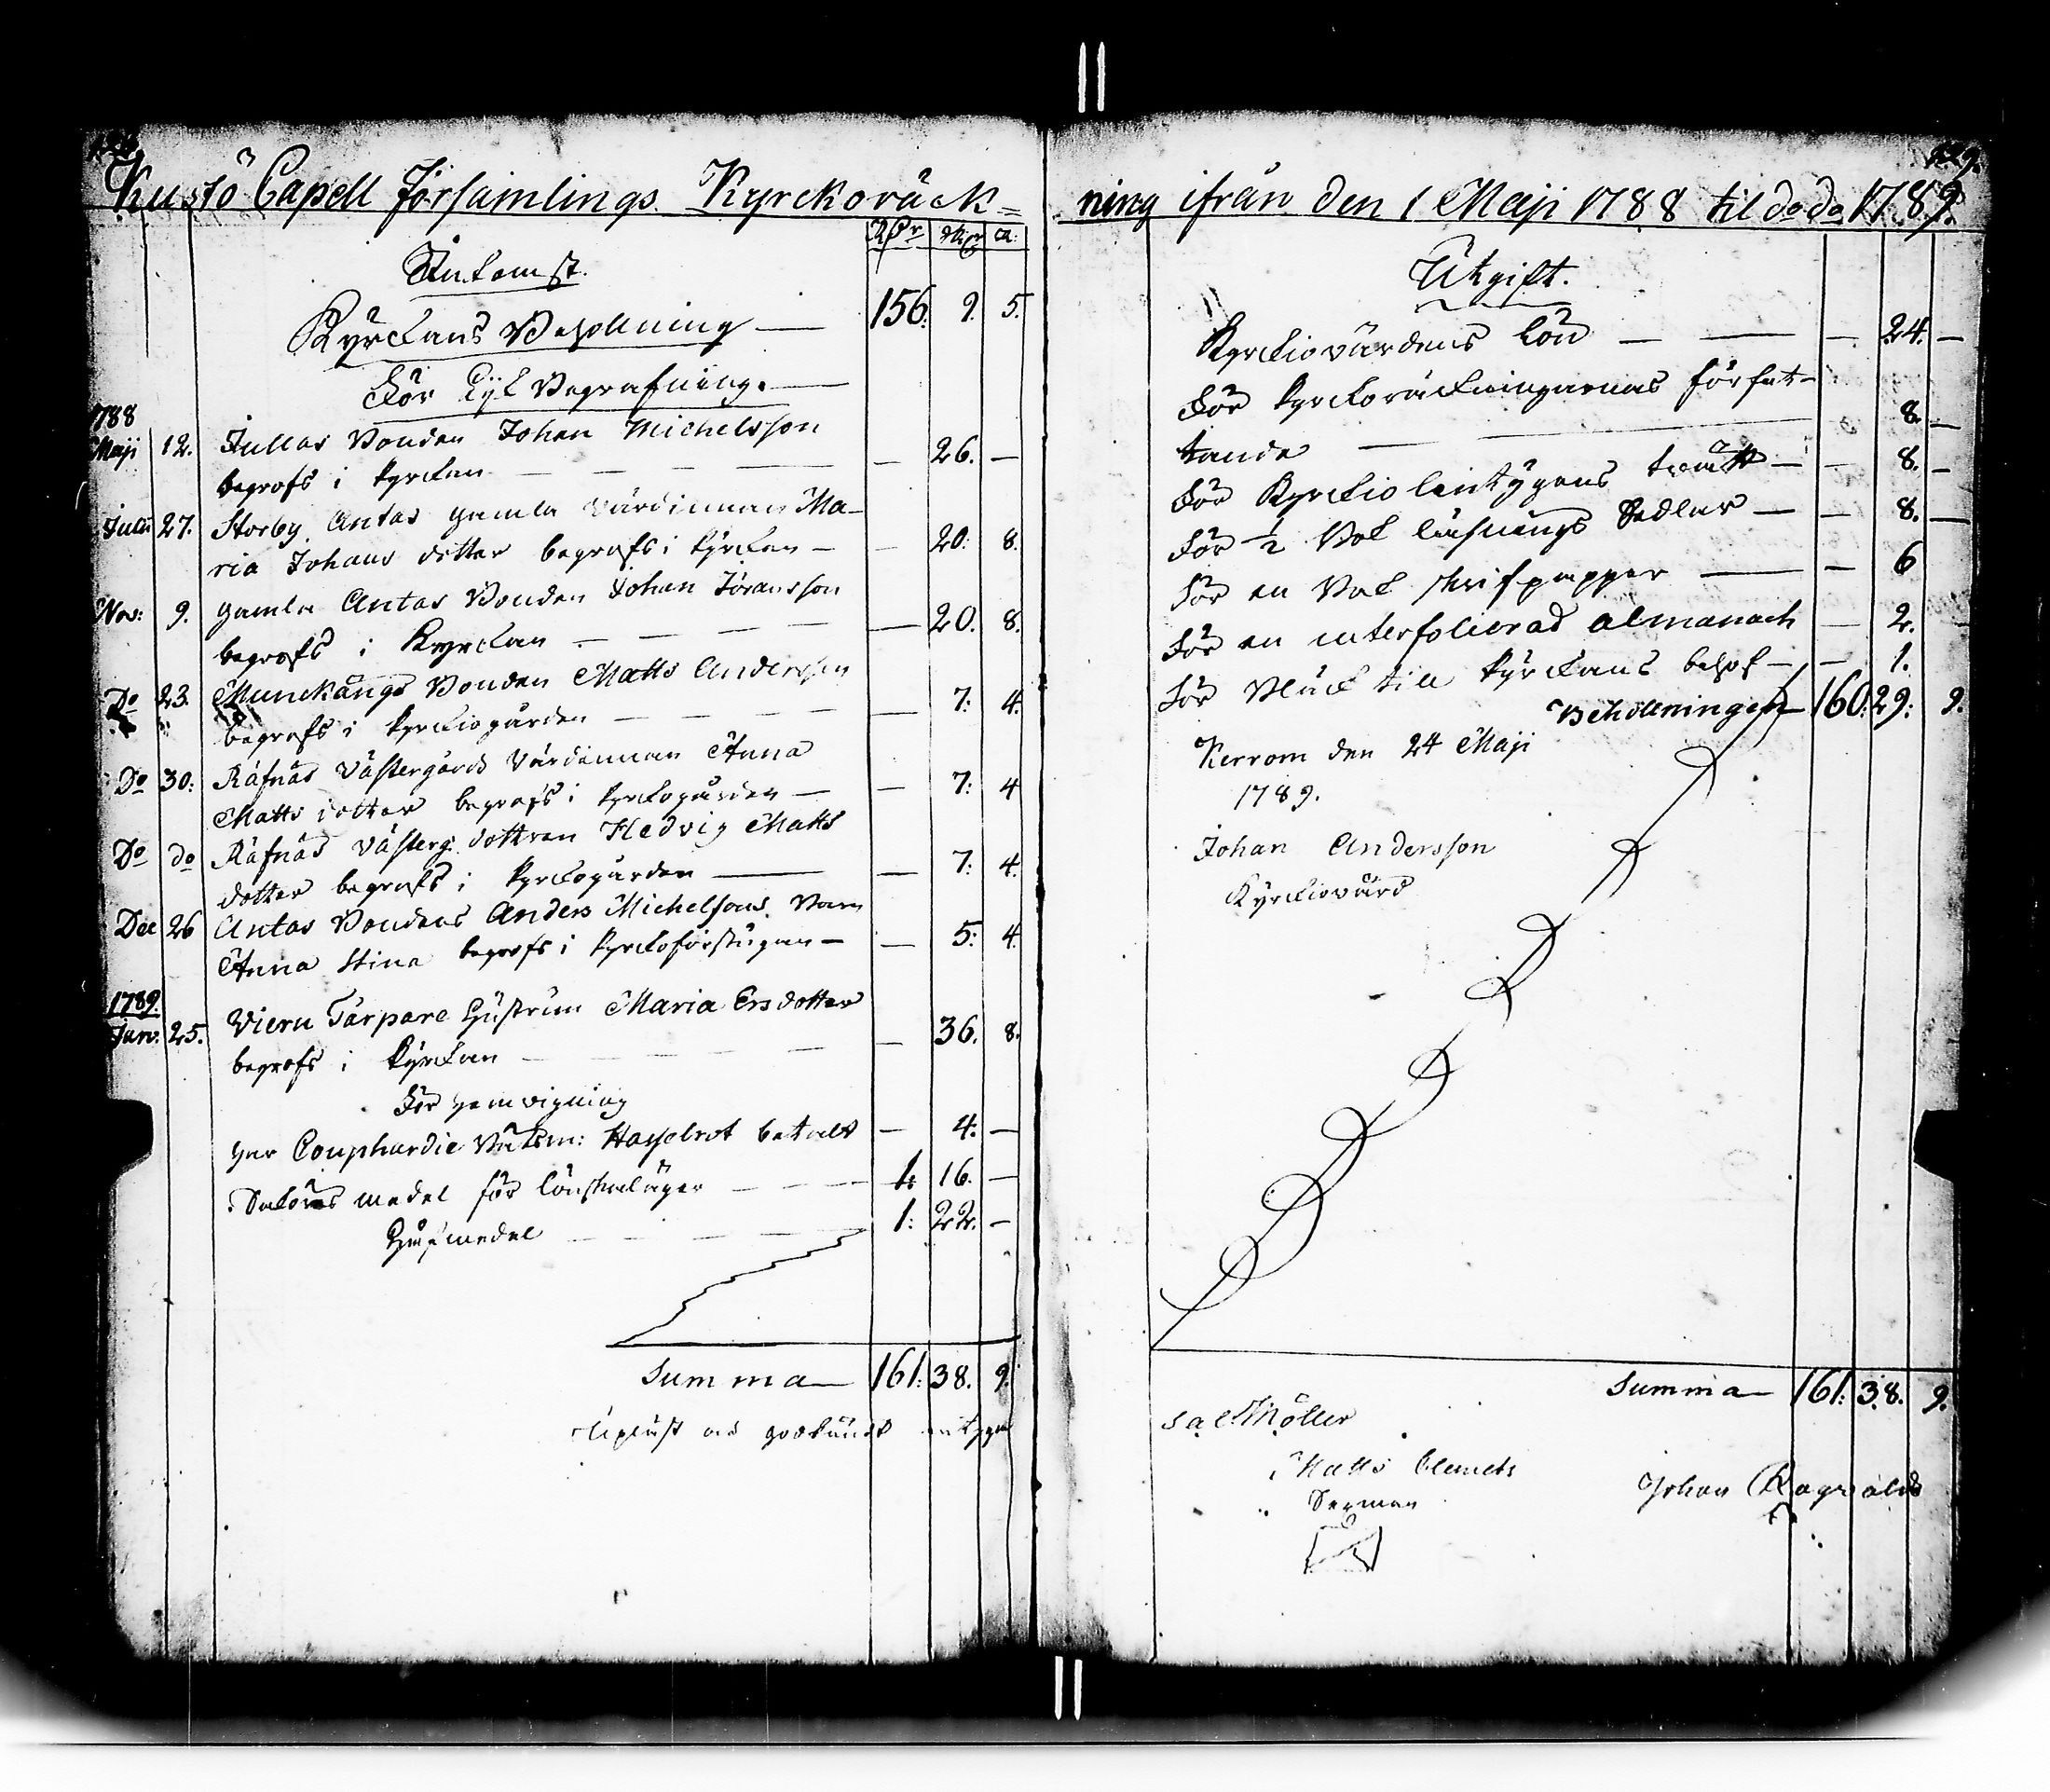 Kustö Capell Församlings Kyrckoräck=
Rdr Skr r:
Inkomst.
Kyrckans Behollning — 156: 9. 5.
För Lijk Begrafning. —
1788
Maji 12. Jullas Bonden Johan Michelsson
begrofs i kyrckan — — 26. —
Julii 27. Storby Antas gamla värdinnan Ma-
ria Johans dotter begrofs i kyrckan — — 20: 8.
Nov: 9. gamla Antas Bonden Johan Jöransson
begrofs i Kyrckan — — 20. 8.
Do 23. Munckängs Bonden Matts Andersson
begrofs i kyrckiogården — — 7: 4.
Do 30: Räfnäs Västergårds Värdinnan Anna
Matts dotter begrofs i kyrckogården — — 7: 4
Do do Räfnäs Västerg: dottren Hedvig Matts
dotter begrofs i kyrckogården — — 7: 4.
Dec 26 Antas Bondens Anders Michelsons Barn
Anna Stina begrofs i kyrckoförstugan — — 5: 4.
1789.
Janv. 25. Vieru Tärpare Hustrun Maria Ersdotter
begrofs i kyrckan — — 36. 8.
För hemvigning
har Couphardie Båtsm: Hasselrot betalt — 4. —
Sakörs medel för lönskaläger — 1: 16. —
Håfmedel — 1: 22. —
Summa — 161: 38. 9.
Upläst och godkändt
129.
ning ifrån den 1 Maji 1788 til do do 1789.
Utgift.
Kyrckiovärdens lön — — 24. —
För kyrckoräckningarnas förfat-
tande — 8. —
För Kyrckio lintygens tvätt — — 8. —
För 1/2 Bok läsnings Sedlar — — 8. —
För en Bok skrifpapper — — 6
För en interfolierad almanach — 2.
För Bläck till kyrckans behof — — 1.
Behollningen — 160: 29: 9.
Kerrom den 24 Maji
1789.
Johan Andersson
Kyrckiovärd
Summa — 161: 38. 9.
Sal. Möller
Matts Clemets
Sexman
Johan Ragvalds